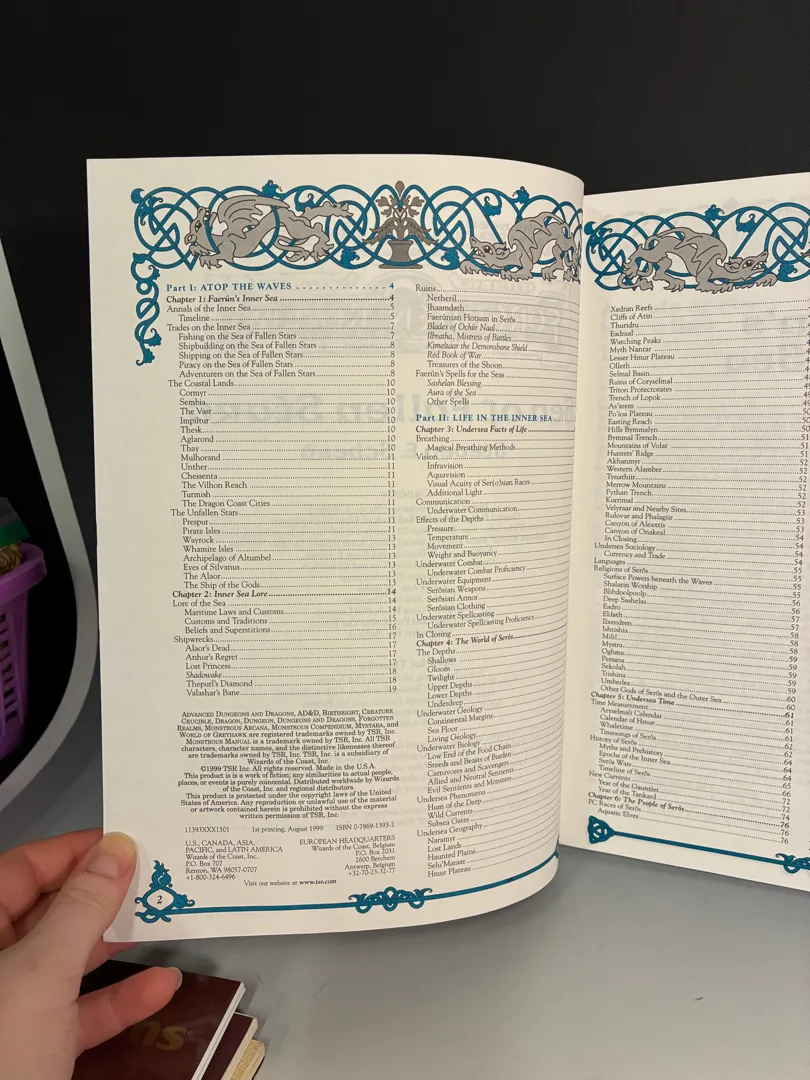 Part I: ATOP THE WAVES . . . . . . . . . . . . . . 4
Chapter 1: Faerûn's Inner Sea 4
Annals of the Inner Sea 5
Timeline 5
Trades on the Inner Sea 7
Fishing on the Sea of Fallen Stars 7
Shipbuilding on the Sea of Fallen Stars 8
Shipping on the Sea of Fallen Stars 8
Piracy on the Sea of Fallen Stars 8
Adventures on the Sea of Fallen Stars 8
The Coastal Lands 10
Cormyr 10
Sembia 10
The Vast 10
Impiltur 10
Thesk 10
Aglarond 10
Thay 10
Mulhorand 11
Unther 11
Chessenta 11
The Vilhon Reach 11
Turmish 11
The Dragon Coast Cities 11
The Unfallen Stars 11
Prespur 11
Pirate Isles 11
Wayrock 13
Whamite Isles 13
Archipelago of Altumbel 13
Eyes of Silvanus 13
The Alaor 13
The Ship of the Gods 13
Chapter 2: Inner Sea Lore 14
Lore of the Sea 14
Maritime Laws and Customs 14
Customs and Traditions 15
Beliefs and Superstitions 16
Shipwrecks 17
Alaor's Dead 17
Anhur's Regret 17
Lost Princess 17
Shadowake 18
Thepurl's Diamond 18
Valashar's Bane 19
ADVANCED DUNGEONS AND DRAGONS, AD&D, BIRTHRIGHT, CREATURE
CRUCIBLE, DRAGON, DUNGEON, DUNGEONS AND DRAGONS, FORGOTTEN
REALMS, MONSTROUS ARCANA, MONSTROUS COMPENDIUM, MYSTARA, and
WORLD OF GREYHAWK are registered trademarks owned by TSR, Inc.
MONSTROUS MANUAL is a trademark owned by TSR, Inc. All TSR
characters, character names, and the distinctive likenesses thereof
are trademarks owned by TSR, Inc. TSR, Inc. is a subsidiary of
Wizards of the Coast, Inc.
©1999 TSR Inc. All rights reserved. Made in the U.S.A.
This product is a work of fiction; any similarities to actual people,
places, or events is purely coincental. Distributed worldwide by Wizards
of the Coast, Inc. and regional distributors.
This product is protected under the copyright laws of the United
States of America. Any reproduction or unlawful use of the material
or artwork contained herein is prohibited without the express
written permission of TSR, Inc.
11393XXX1501 1st printing, August 1999 ISBN 0-7869-1393-2
U.S., CANADA, ASIA,
PACIFIC, and LATIN AMERICA
Wizards of the Coast, Inc.
P.O. Box 707
Renton, WA 98057-0707
+1-800-324-6496
EUROPEAN HEADQUARTERS
Wizards of the Coast, Belgium
P.O. Box 2031
2600 Berchem
Antwerp, Belgium
+32-70-23-32-77
Visit our website at www.tsr.com
2
Ruins
Netheril
Jhaamdath
Faerûnian Flotsam in Serôs
Blades of Ochir Naal
Ilbratha, Mistress of Battles
Kimeltaar the Demonsbane Shield
Red Book of War
Treasures of the Shoon
Faerûn's Spells for the Seas
Sashelan Blessing
Aura of the Sea
Other Spells
Part II: LIFE IN THE INNER SEA
Chapter 3: Undersea Facts of Life
Breathing
Magical Breathing Methods
Vision
Infravision
Aquavision
Visual Acuity of Ser(o)sian Races
Additional Light
Communication
Underwater Communication
Effects of the Depths
Pressure
Temperature
Movement
Weight and Buoyancy
Underwater Combat
Underwater Combat Proficiency
Underwater Equipment
Serôsian Weapons
Serôsian Armor
Serôsian Clothing
Underwater Spellcasting
Underwater Spellcasting Proficiency
In Closing
Chapter 4: The World of Serôs
The Depths
Shallows
Gloom
Twilight
Upper Depths
Lower Depths
Underdeep
Underwater Geology
Continental Margins
Sea Floor
Living Geology
Underwater Biology
Low End of the Food Chain
Seeds and Beasts of Burden
Carnivores and Scavengers
Allied and Neutral Sentients
Evil Sentients and Monsters
Undersea Phenomena
Hum of the Deep
Wild Currents
Subsea Gates
Undersea Geography
Naramyr
Lost Lands
Haunted Plains
Selu'Maraar
Hmur Plateau
Xedran Reefs
Cliffs of Atin
Thuridru
Eadraal
Watching Peaks
Myth Nantar
Lesser Hmur Plateau
Olleth
Selmal Basin
Ruins of Coryselmal
Triton Protectorates
Trench of Lopok
As'arem
Po'ioa Plateau 50
Easting Reach 50
Hills Bymmalyn 50
Bymmal Trench 51
Mountains of Volar 51
Hunters' Ridge 51
Akhanmyr 52
Western Alamber 52
Tynathiir 52
Merrow Mountains 52
Pythan Trench 52
Kurrimal 52
Velyraar and Nearby Sites 53
Rulovar and Phalagiir 53
Canyon of Aleaxtis 53
Canyon of Onakeal 54
In Closing 54
Undersea Sociology 54
Currency and Trade 54
Languages 55
Religions of Serôs 55
Surface Powers beneath the Waves 55
Shalarin Worship 56
Blibdoolpoolp 56
Deep Sashelas 56
Eadro 57
Eldath 57
Ilxendren 58
Ishtishia 58
Milil 58
Mystra 59
Oghma 59
Persana 59
Sekolah 59
Trishina 59
Umberlee 60
Other Gods of Serôs and the Outer Sea 60
Chapter 5: Undersea Time 61
Time Measurement 61
Aryselmali Calendar 61
Calendar of Hmur 61
Whaletime 61
Timesongs of Serôs 62
History of Serôs 62
Myths and Prehistory 62
Epochs of the Inner Sea 64
Serôs Wars 64
Timeline of Serôs 65
New Currents 66
Year of the Gauntlet 72
Year of the Tankard 72
Chapter 6: The People of Serôs 74
PC Races of Serôs 76
Aquatic Elves 76